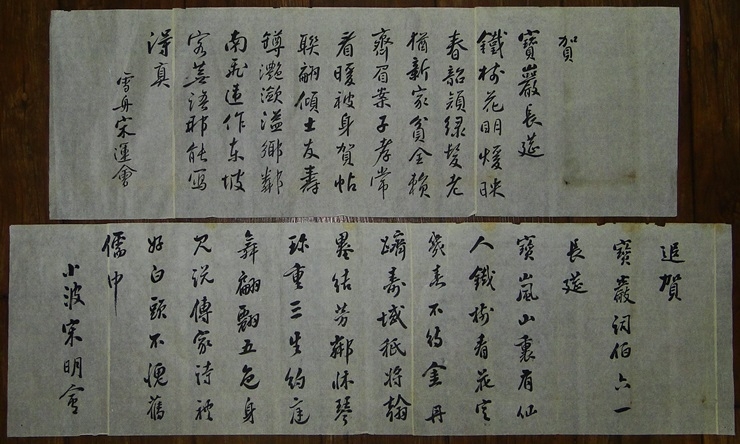 賀
寶巖長筵
鐵樹花明煖映
春韶顏綠髮老
猶新家貧全賴
齊眉案子孝常
看暖被身賀帖
聯翩傾士友壽
罇灧瀲溢鄉鄰
南飛作東坡
客語那能寫
得真
雪舟宋運會
追賀
寶巖詞伯六一
長筵
寶嵐山裏有仙
人鐵樹看花定
幾春不待金丹
躋壽域祇將翰
墨結芳鄰床琴
珍重三生約庭
舞翩翻五色身
見說傳家詩禮
好白頭不愧舊
儒巾
小波宋明會